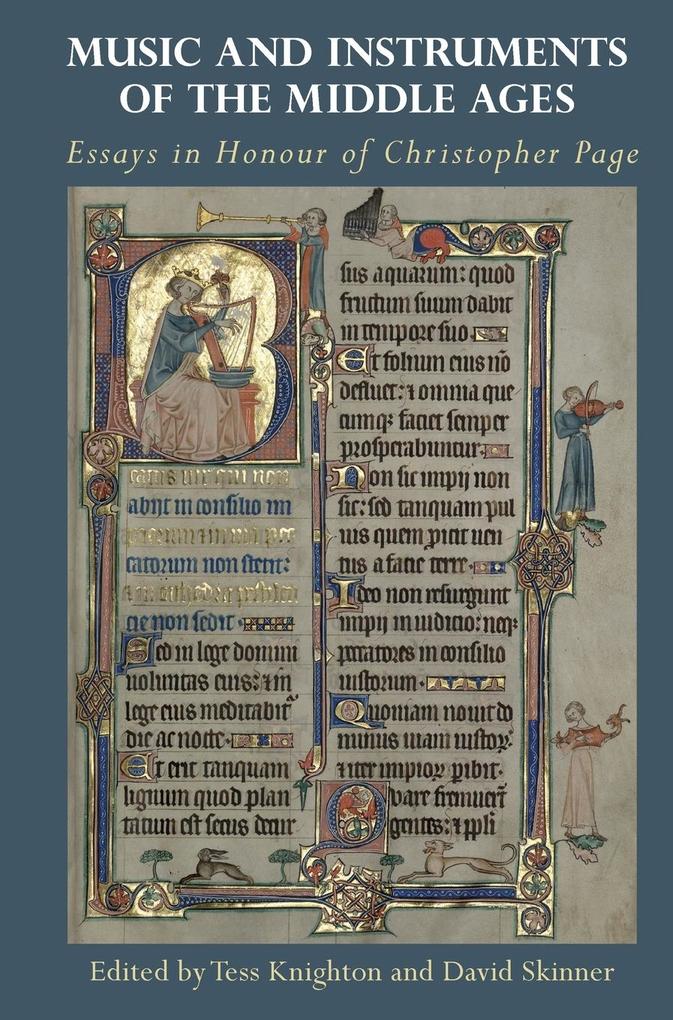 MUSIC AND INSTRUMENTS
OF THE MIDDLE AGES
Essays in Honour of Christopher Page
B
eatus uir qui non
abijt in consilio im
piorum ⁊ in uia pec
catorum non stetit:
⁊ in cathedra pestilen
cie non sedit
Sed in lege domini
uoluntas eius: ⁊ in
lege eius meditabit᷑
die ac nocte
Et erit tanquam
lignum quod plan
tatum est secus decur
sus aquarum: quod
fructum suum dabit
in tempore suo
Et folium eius nō
defluet: ⁊ omnia que
cumqꝫ faciet semper
prosperabuntur
Non sic impij non
sic: sed tanquam pul
uis quem ꝓicit uen
tus a facie terre
Ideo non resurgunt
impij in iudicio: neqꝫ
peccatores in consilio
iustorum
Quoniam nouit do
minus uiam iustoꝝ:
⁊ iter impioꝝ ꝑibit
Quare fremuer̄t
gentes: ⁊ ppłi
Edited by Tess Knighton and David Skinner